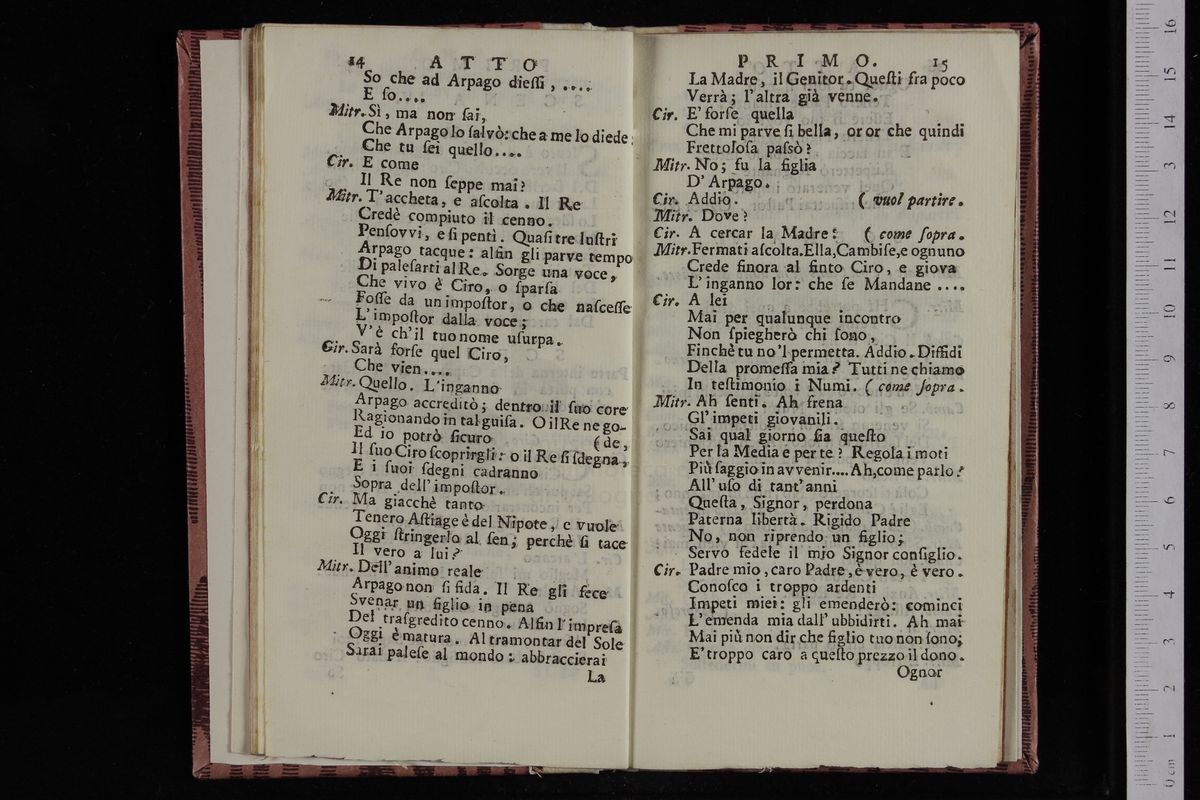 14 ATTO
So che ad Arpago dieſſi , ....
E ſo....
Mitr. Sì, ma non ſai,
Che Arpago lo ſalvò: che a me lo diede:
Che tu ſei quello....
Cir. E come
Il Re non ſeppe mai?
Mitr. T'accheta, e aſcolta. Il Re
Credè compiuto il cenno.
Penſovvi, e ſi pentì. Quaſi tre luſtri
Arpago tacque: alfin gli parve tempo
Di paleſarti al Re. Sorge una voce,
Che vivo è Ciro, o ſparſa
Foſſe da un impoſtor, o che naſceſſe
L'impoſtor dalla voce;
V'è ch'il tuo nome uſurpa.
Cir. Sarà forſe quel Ciro,
Che vien....
Mitr. Quello. L'inganno
Arpago accreditò; dentro il ſuo core
Ragionando in tal guiſa. O il Re ne go-
Ed io potrò ſicuro (de,
Il ſuo Ciro ſcoprirgli: o il Re ſi ſdegna,
E i ſuoi ſdegni cadranno
Sopra dell'impoſtor.
Cir. Ma giacchè tanto
Tenero Aſtiage è del Nipote, e vuole
Oggi ſtringerlo al ſen; perchè ſi tace
Il vero a lui?
Mitr. Dell'animo reale
Arpago non ſi fida. Il Re gli fece
Svenar un figlio in pena
Del traſgredito cenno. Alfin l'impreſa
Oggi è matura. Al tramontar del Sole
Sarai paleſe al mondo: abbraccierai
La
PRIMO. 15
La Madre, il Genitor. Queſti fra poco
Verrà; l'altra già venne.
Cir. E' forſe quella
Che mi parve ſi bella, or or che quindi
Frettoloſa paſsò?
Mitr. No; fu la figlia
D'Arpago.
Cir. Addio. ( vuol partire.
Mitr. Dove?
Cir. A cercar la Madre: ( come ſopra.
Mitr. Fermati aſcolta. Ella, Cambiſe, e ognuno
Crede finora al finto Ciro, e giova
L'inganno lor: che ſe Mandane ....
Cir. A lei
Mai per qualunque incontro
Non ſpiegherò chi ſono,
Finchè tu no'l permetta. Addio. Diffidi
Della promeſſa mia? Tutti ne chiamo
In teſtimonio i Numi. ( come ſopra.
Mitr. Ah ſenti. Ah frena
Gl'impeti giovanili.
Sai qual giorno ſia queſto
Per la Media e per te? Regola i moti
Più ſaggio in avvenir.... Ah, come parlo?
All'uſo di tant'anni
Queſta, Signor, perdona
Paterna libertà. Rigido Padre
No, non riprendo un figlio;
Servo fedele il mio Signor conſiglio.
Cir. Padre mio, caro Padre, è vero, è vero.
Conoſco i troppo ardenti
Impeti miei: gli emenderò: cominci
L'emenda mia dall'ubbidirti. Ah mai
Mai più non dir che figlio tuo non ſono;
E' troppo caro a queſto prezzo il dono.
Ognor
0 cm 1 2 3 4 5 6 7 8 9 10 11 12 13 14 15 16